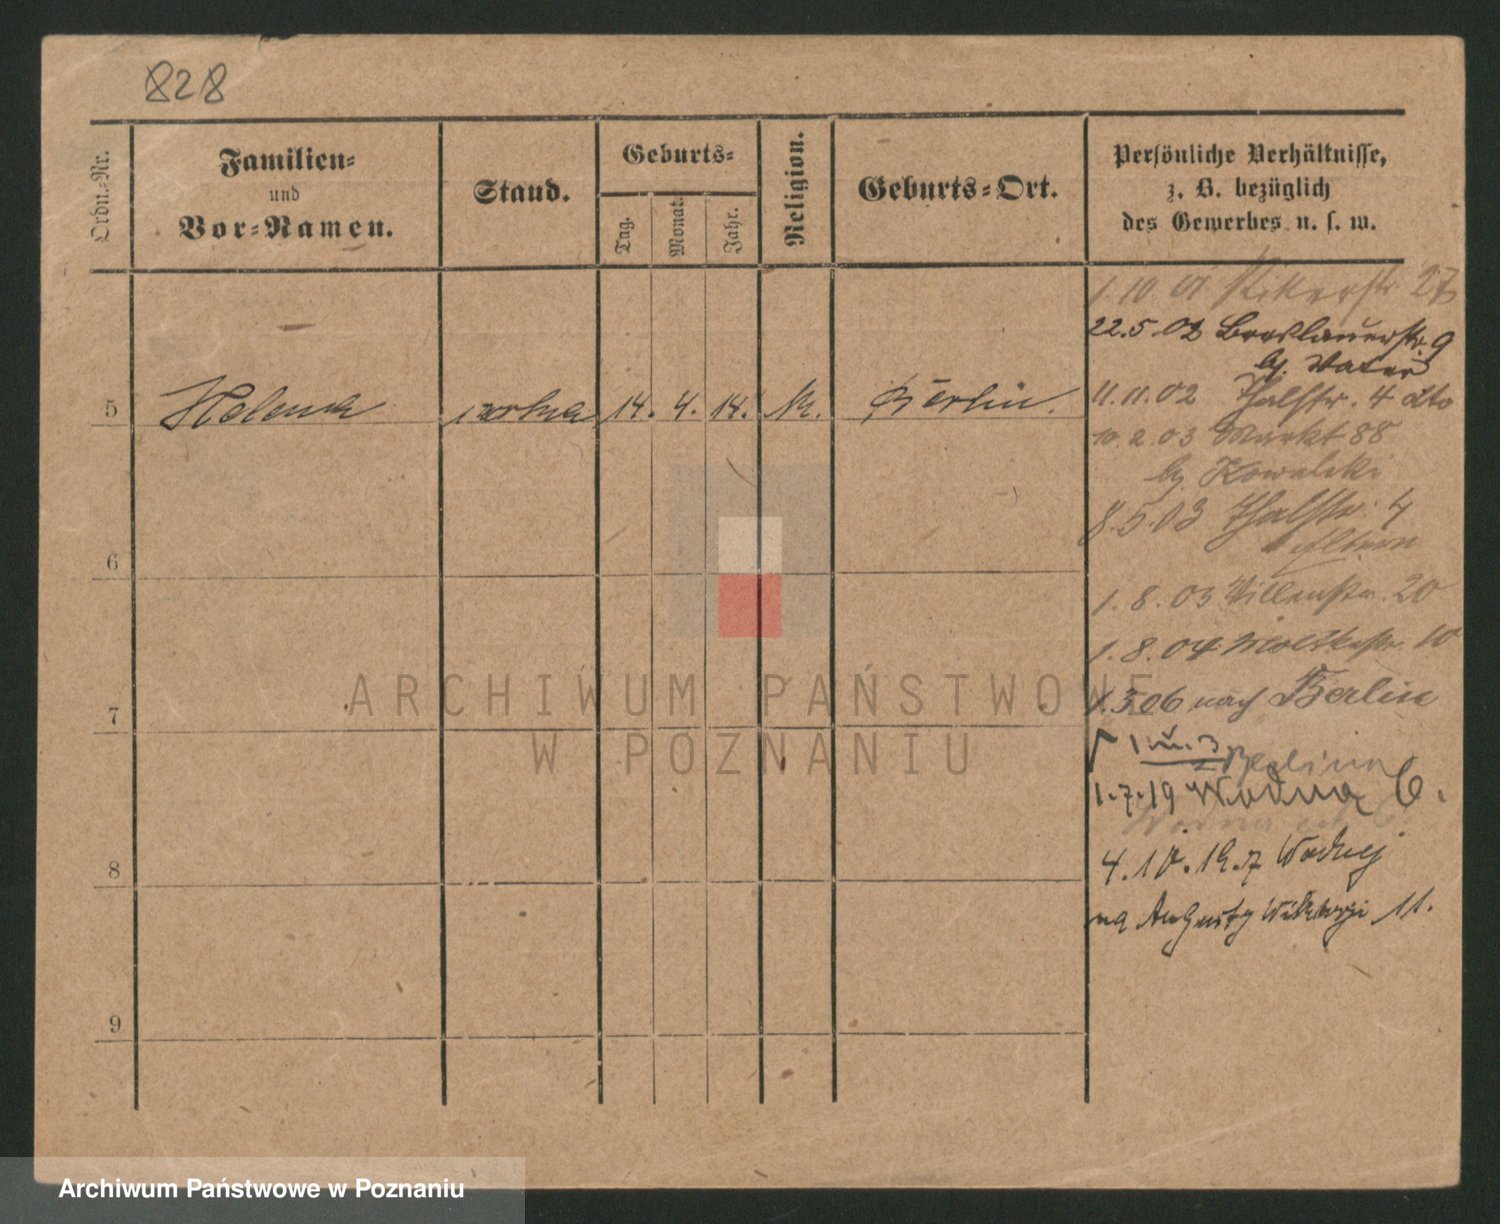 828
Ordn.-Nr.
Familien-
und
Vor-Namen.
Stand.
Geburts-
Tag.
Monat.
Jahr.
Religion.
Geburts-Ort.
Persönliche Verhältnisse,
z. B. bezüglich
des Gewerbes u. s. w.
1.10.01 Ritterstr. 27
22.5.02 Breslauerstr. 9
bj. Vater
5 Helena córka 14. 4. 14. k. Berlin.
11.11.02 Thalstr. 4
10.2.03 Markt 88
bj. Kowalski
8.5.03 Thalstr. 4
Eltern
6
1.8.03 Villenstr. 20
1.8.04 Moltkestr. 10
7
1.3.06 nach Berlin
1 u. 3
z Berlina
1.7.19 Wodna 6.
8
4.10.19. z Wodnej
na Augusty Wiktorji 11.
9
ARCHIWUM PAŃSTWOWE
W POZNANIU
Archiwum Państwowe w Poznaniu